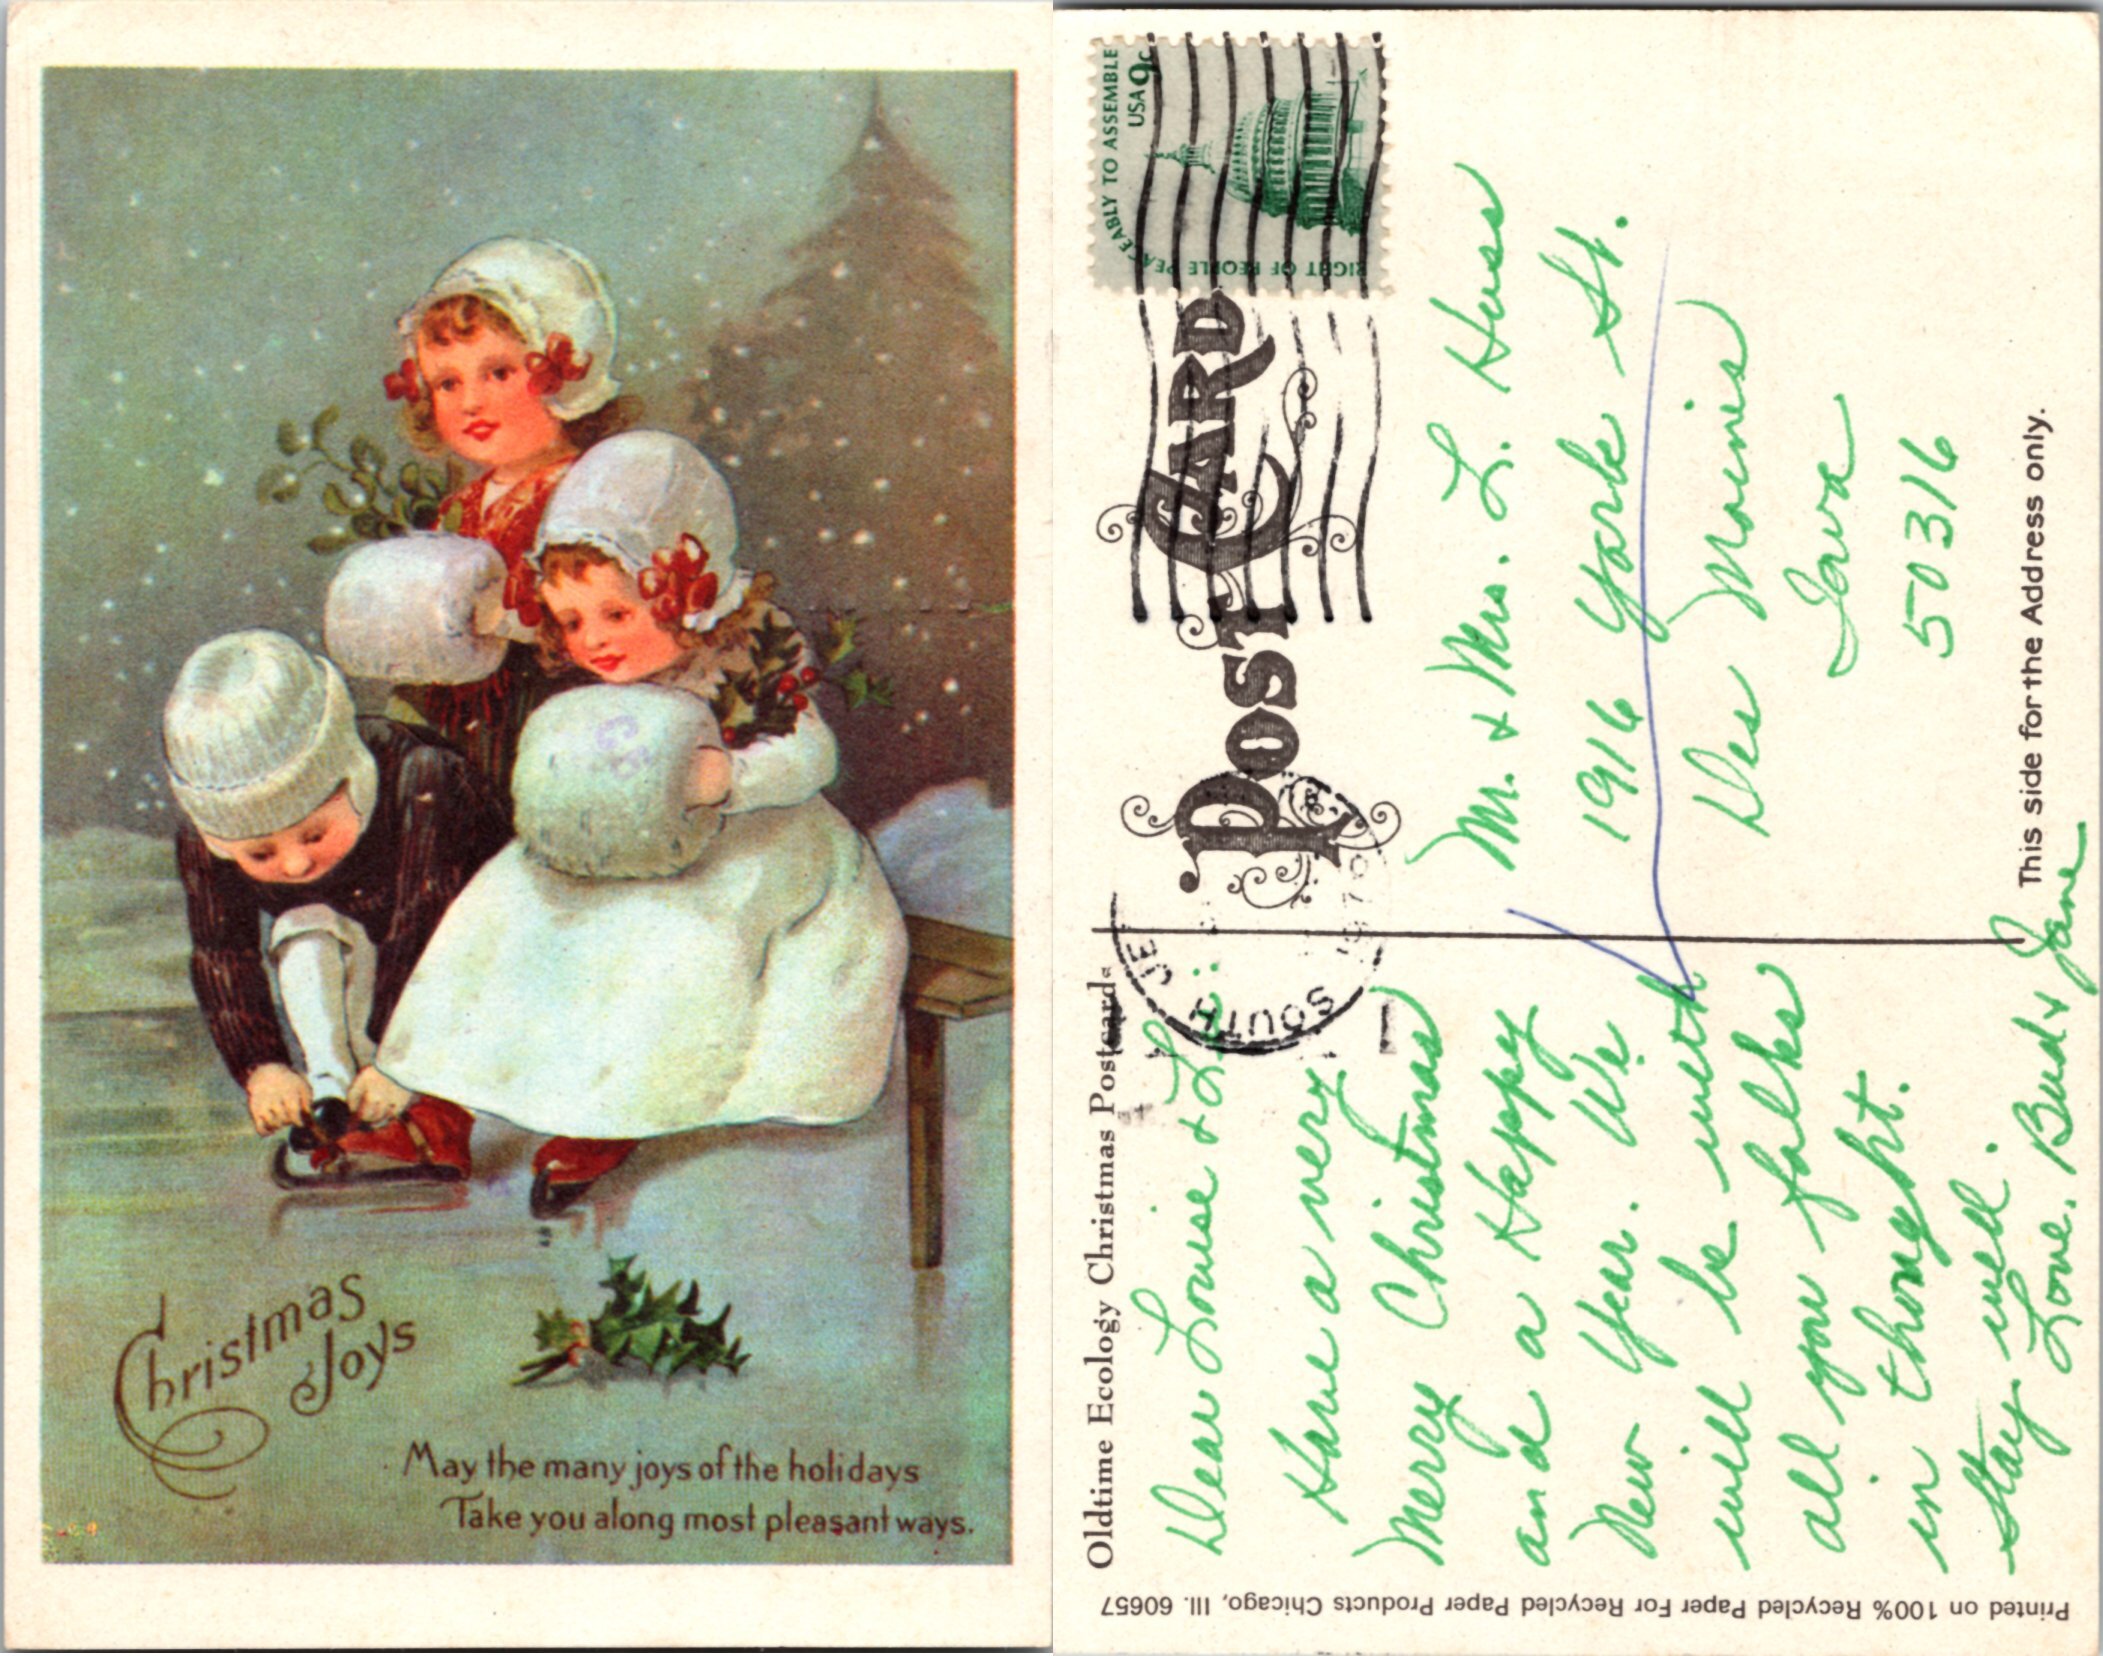 Christmas
Joys
May the many joys of the holidays
Take you along most pleasant ways.
Oldtime Ecology Christmas Postcards
Dear Louise & L
Have a very
Merry Christmas
and a Happy
New Year. We
will be with
all you folks
in thought.
Stay well.
Love, Bud & Jane
Printed on 100% Recycled Paper For Recycled Paper Products Chicago, Ill. 60657
POST CARD
SOUTH JE
197
RIGHT OF PEOPLE PEACEABLY TO ASSEMBLE
USA 9c
Mr. & Mrs. L. Huss
1916 York St.
Des Moines
Iowa
50316
This side for the Address only.